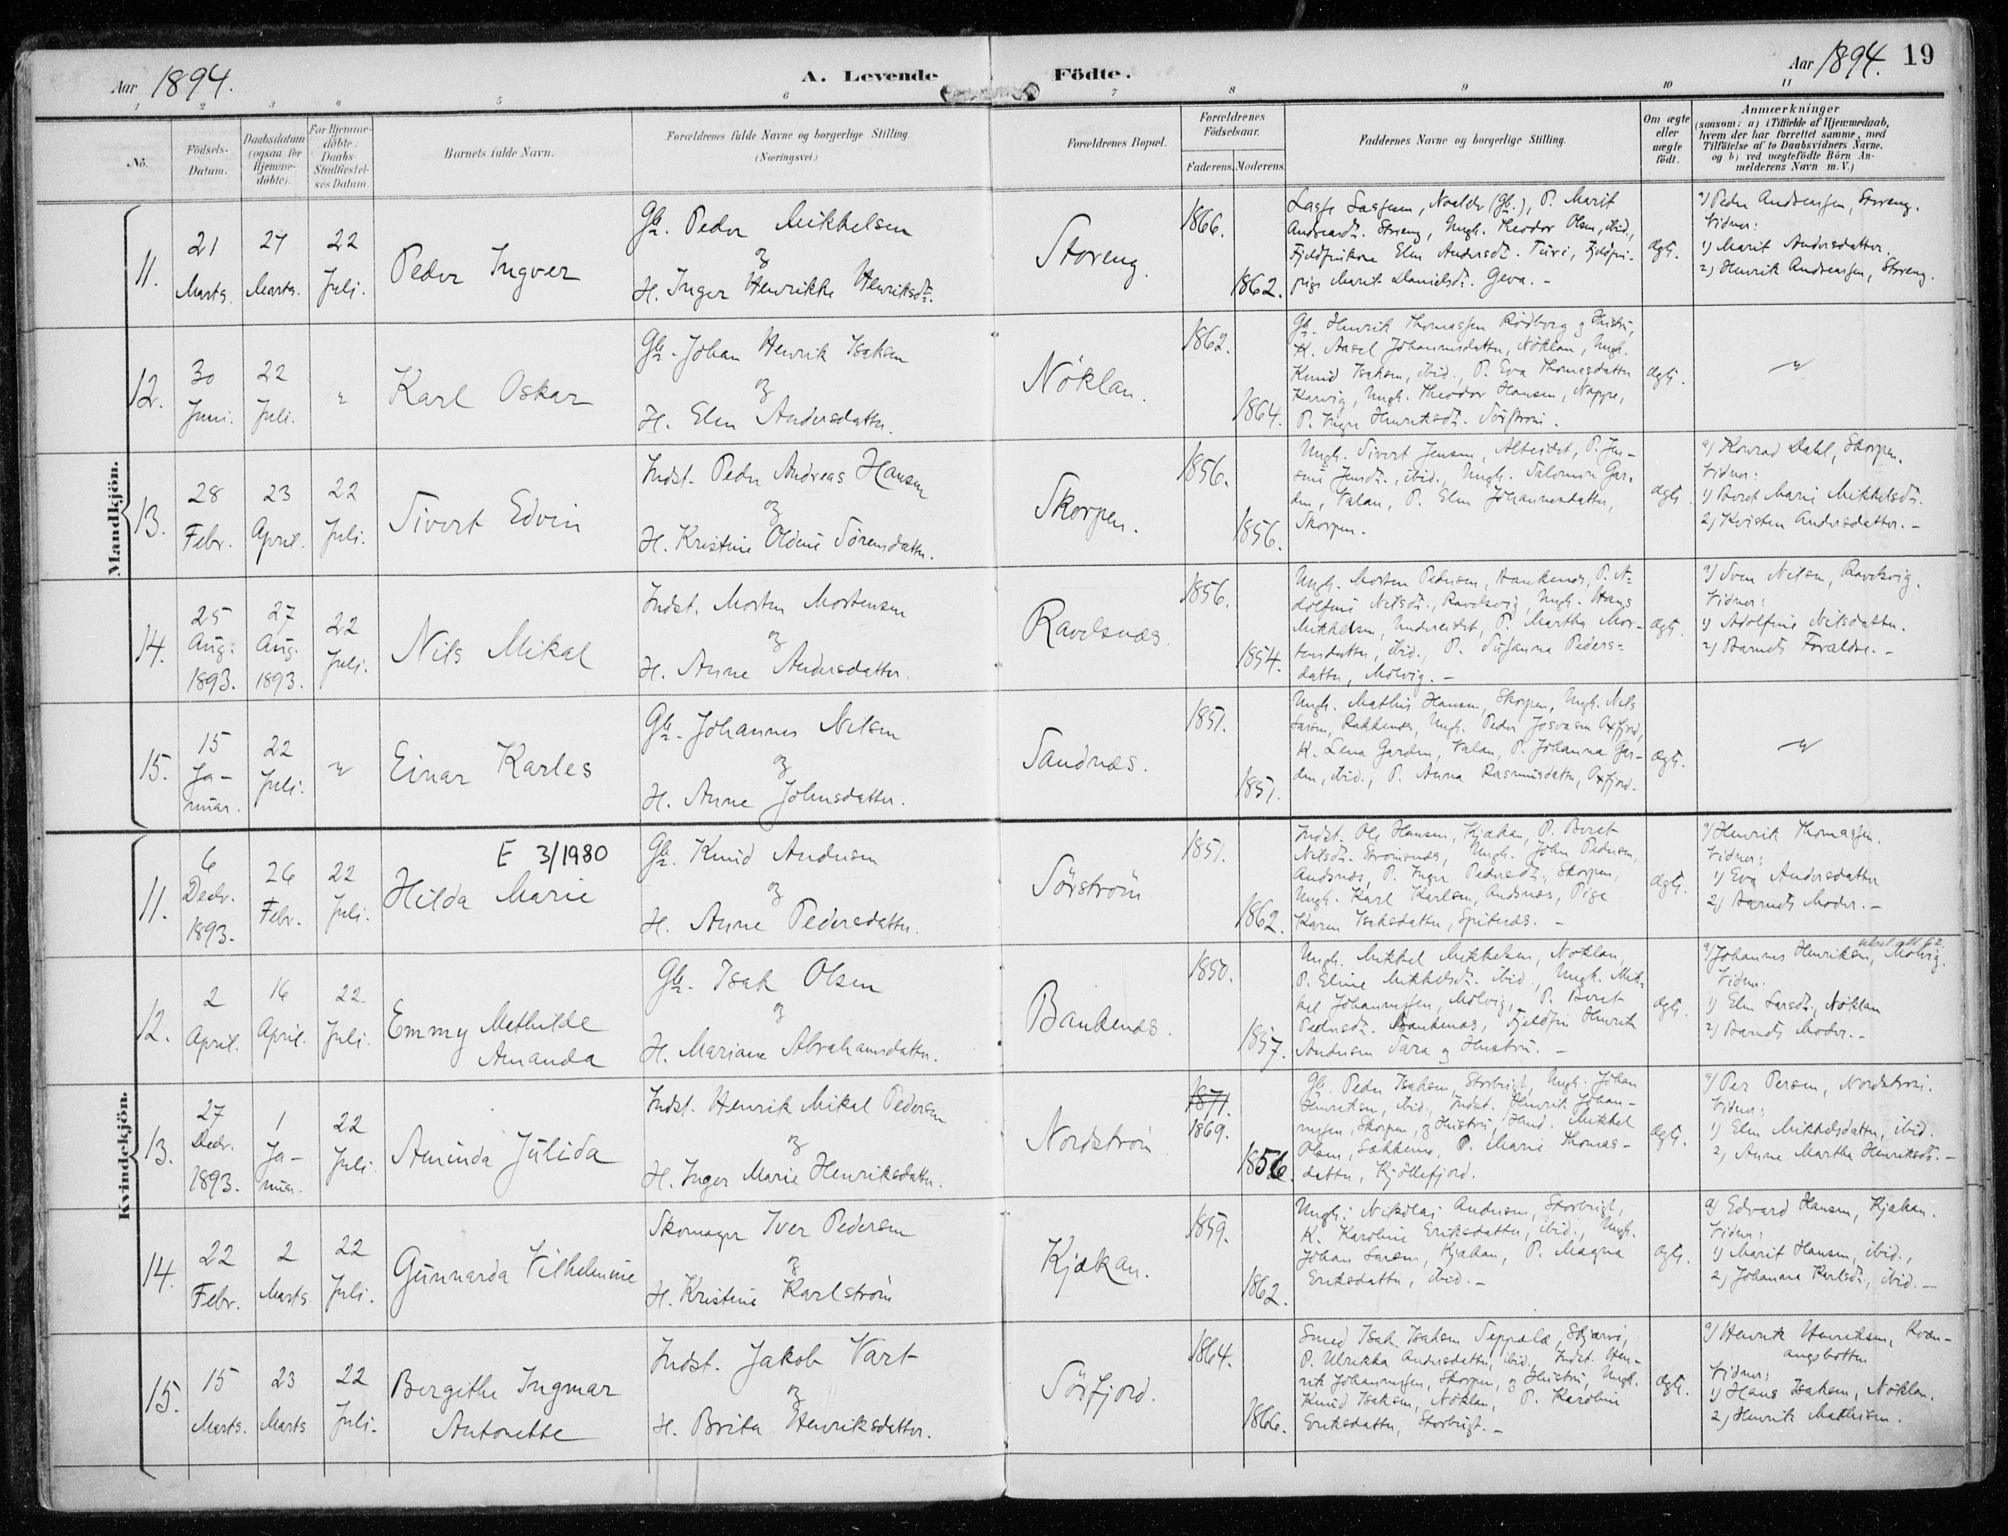 Aar 1894.
A. Levende Födte.
Aar 1894. 19
1 2 3 4 5 6 7 8 9 10 11
No.
Födsels-
Datum.
Daabsdatum
(ogsaa for
Hjemme-
döbte).
For Hjemme-
döbte:
Daabs-
Stadfæstel-
ses Datum.
Barnets fulde Navn.
Forældrenes fulde Navne og borgerlige Stilling.
(Næringsvei.)
Forældrenes Bopæl.
Forældrenes
Födselsaar.
Faderens. Moderens.
Faddernes Navne og borgerlige Stilling.
Om ægte
eller
uægte
födt.
Anmærkninger
(saasom: a) i Tilfælde af Hjemmedaab,
hvem der har forrettet samme, med
Tilföielse af to Daabsvidners Navne.
og b) ved uægtefödte Börn An-
melderens Navn m. V.)
Mandkjön.
11.
21
Marts.
27
Marts.
22
Juli.
Peder Ingver
Gbr. Peder Mikkelsen
og
H. Inger Henrikke Henriksdtr.
Storeng.
1866.
1862.
Andreasdtr. Storeng, Ungk. Theodor Olsen, ibid.,
Marit Danielsdtr. Geva. -
ægt.
a) Peder Andreassen, Storeng.
Vidner:
1) Marit Andersdatter.
2) Henrik Andreassen, Storeng.
12.
30
Juni.
22
Juli.
"
Karl Oskar
Gbr. Johan Henrik Isaksen
og
H. Elen Andersdatter.
Nöklan.
1862.
1864.
Gbr. Henrik Thomassen Rödberg og Hustru,
K. Aasel Johannesdatter, Nöklan, Ungk.
Knud Isaksen, ibid., P. Eva Thomasdatter
Karvig, Ungk. Theodor Hansen, Nappe,
P. Inger Henriksdtr. Sörström.
ægt.
"
13.
28
Febr.
23
April.
22
Juli.
Sivert Edvin
Indst. Peder Andreas Hansen
og
H. Kristine Oldine Sörensdatter.
Skorpen.
1856.
1856.
Ungk. Sivert Jensen, Alteidet, P. Jen-
sine Jensdtr., ibid., Ungk. Salomon Gar-
den, Valan, P. Elen Johannesdatter,
Skorpen.
ægt.
a) Konrad Dahl, Skorpen.
Vidner:
1) Beret Marie Mikkelsdtr.
2) Kristen Andersdatter. -
14.
25
Aug.
1893.
27
Aug.
1893.
22
Juli.
Nils Mikal
Indst. Morten Mortensen
og
H. Anne Andersdatter.
Ravelsnæs
1856.
1854.
Ungk. Morten Pedersen, Baukenæs, P. A-
dolfine Nilsdtr., Ravelsvig, Ungk. Hans
Mikkelsen, Undereidet, P. Martha Mor-
tensdatter, ibid., P. Susanna Peders-
datter, Mölvig. -
ægt.
a) Sven Nilsen, Ravelsvig.
Vidner:
1) Adolfine Nilsdatter.
2) Barnets Forældre. -
15.
15
Ja-
nuar.
22
Juli.
"
Einar Karles
Gbr. Johannes Nilsen
og
H. Anne Johnsdatter.
Sandnæs.
1851.
1851.
Ungk. Mathis Hansen, Skorpen, Ungk. Nils
Larsen, Rakkenæs, Ungk. Peder Josvasen Oxfjord,
K. Lena Garden, Valan, P. Johanna Gar-
den, ibid., P. Anna Rasmusdatter, Oxfjord.
ægt.
"
Kvindekjön.
11.
6
Decbr.
1893.
26
Febr.
22
Juli.
E 3/1980
Hilda Marie
Gbr. Knud Andersen
og
H. Anne Pedersdatter.
Sörström
1851.
1862.
Indst. Ole Hansen, Kjækan, P. Beret
Nilsdtr. Strömsnæs, Ungk. John Pedersen,
Andsnæs, P. Inger Pedersdtr., Skorpen,
Ungk. Karl Karlsen, Andsnæs, Pige
Karen Isaksdatter, Spitnæs. -
ægt.
a) Henrik Thomassen.
Vidner:
1) Eva Andersdatter
2) Barnets Moder. -
12.
2
April.
16
April.
22
Juli.
Emmy Mathilde
Amanda
Gbr. Isak Olsen
og
H. Mariane Abrahamsdatter.
Baukenæs.
1850.
1857.
Ungk. Mikkel Mikkelsen, Nöklan,
P. Eline Mikkelsdtr. ibid., Ungk. Mik-
kel Johannessen, Mölvig, P. Beret
Pedersdtr. Baukenæs, Fjeldfin Henrik
Andersen Sara og Hustru. -
ægt.
a) Johannes Henriksen, Mölvig.
Vidner:
1) Elen Larsdtr., Nöklan
2) Barnets Moder. -
13.
27
Decbr.
1893.
1
Ja-
nuar.
22
Juli.
Aminda Julida
Indst. Henrik Mikal Pedersen
og
H. Inger Marie Henriksdatter.
Nordström
1871.
1869.
1856.
Gbr. Peder Isaksen, Storbugt, Ungk. Johan
Henriksen, ibid., Indst. Henrik Johan-
nessen, Skorpen, og Hustru, Hmd. Mikkel
Olsen, Sakkemo, P. Marie Thomas-
datter, Kjöllefjord.
ægt.
a) Per Persen, Nordström.
Vidner:
1) Elen Mikkelsdatter, ibid.
2) Anne Martha Henriksdtr. -
14.
22
Febr.
2
Marts
22
Juli.
Gunnarda Vilhelmine
Skomager Iver Pedersen
og
H. Kristine Karlström
Kjækan.
1859.
1862.
Ungk. Nikolai Andersen, Storbugt,
K. Karoline Eriksdatter, ibid., Ungk.
Johan Larsen, Kjækan, P. Magna
Eriksdatter, ibid. -
ægt.
a) Edvard Hansen, Kjækan.
Vidner:
1) Marit Hansen, ibid.,
2) Johanna Karlsdtr., ibid. -
15.
15
Marts.
23
Marts
22
Juli.
Bergithe Ingmar
Antonette
Indst. Jakob Vart
og
H. Brita Henriksdatter.
Sörfjord.
1864.
1866.
Smed Isak Isaksen Seppälä, Skjærvö,
P. Ulrikka Andersdatter, ibid., Indst. Hen-
rik Johannessen, Skorpen, og Hustru, Ungk.
Knud Isaksen, Nöklan, P. Karoline
Eriksdatter, Storbugt. -
ægt.
a) Henrik Henriksen, Kvæn-
angsbotten
Vidner:
1) Hans Isaksen, Nöklan.
2) Henrik Mathisen.